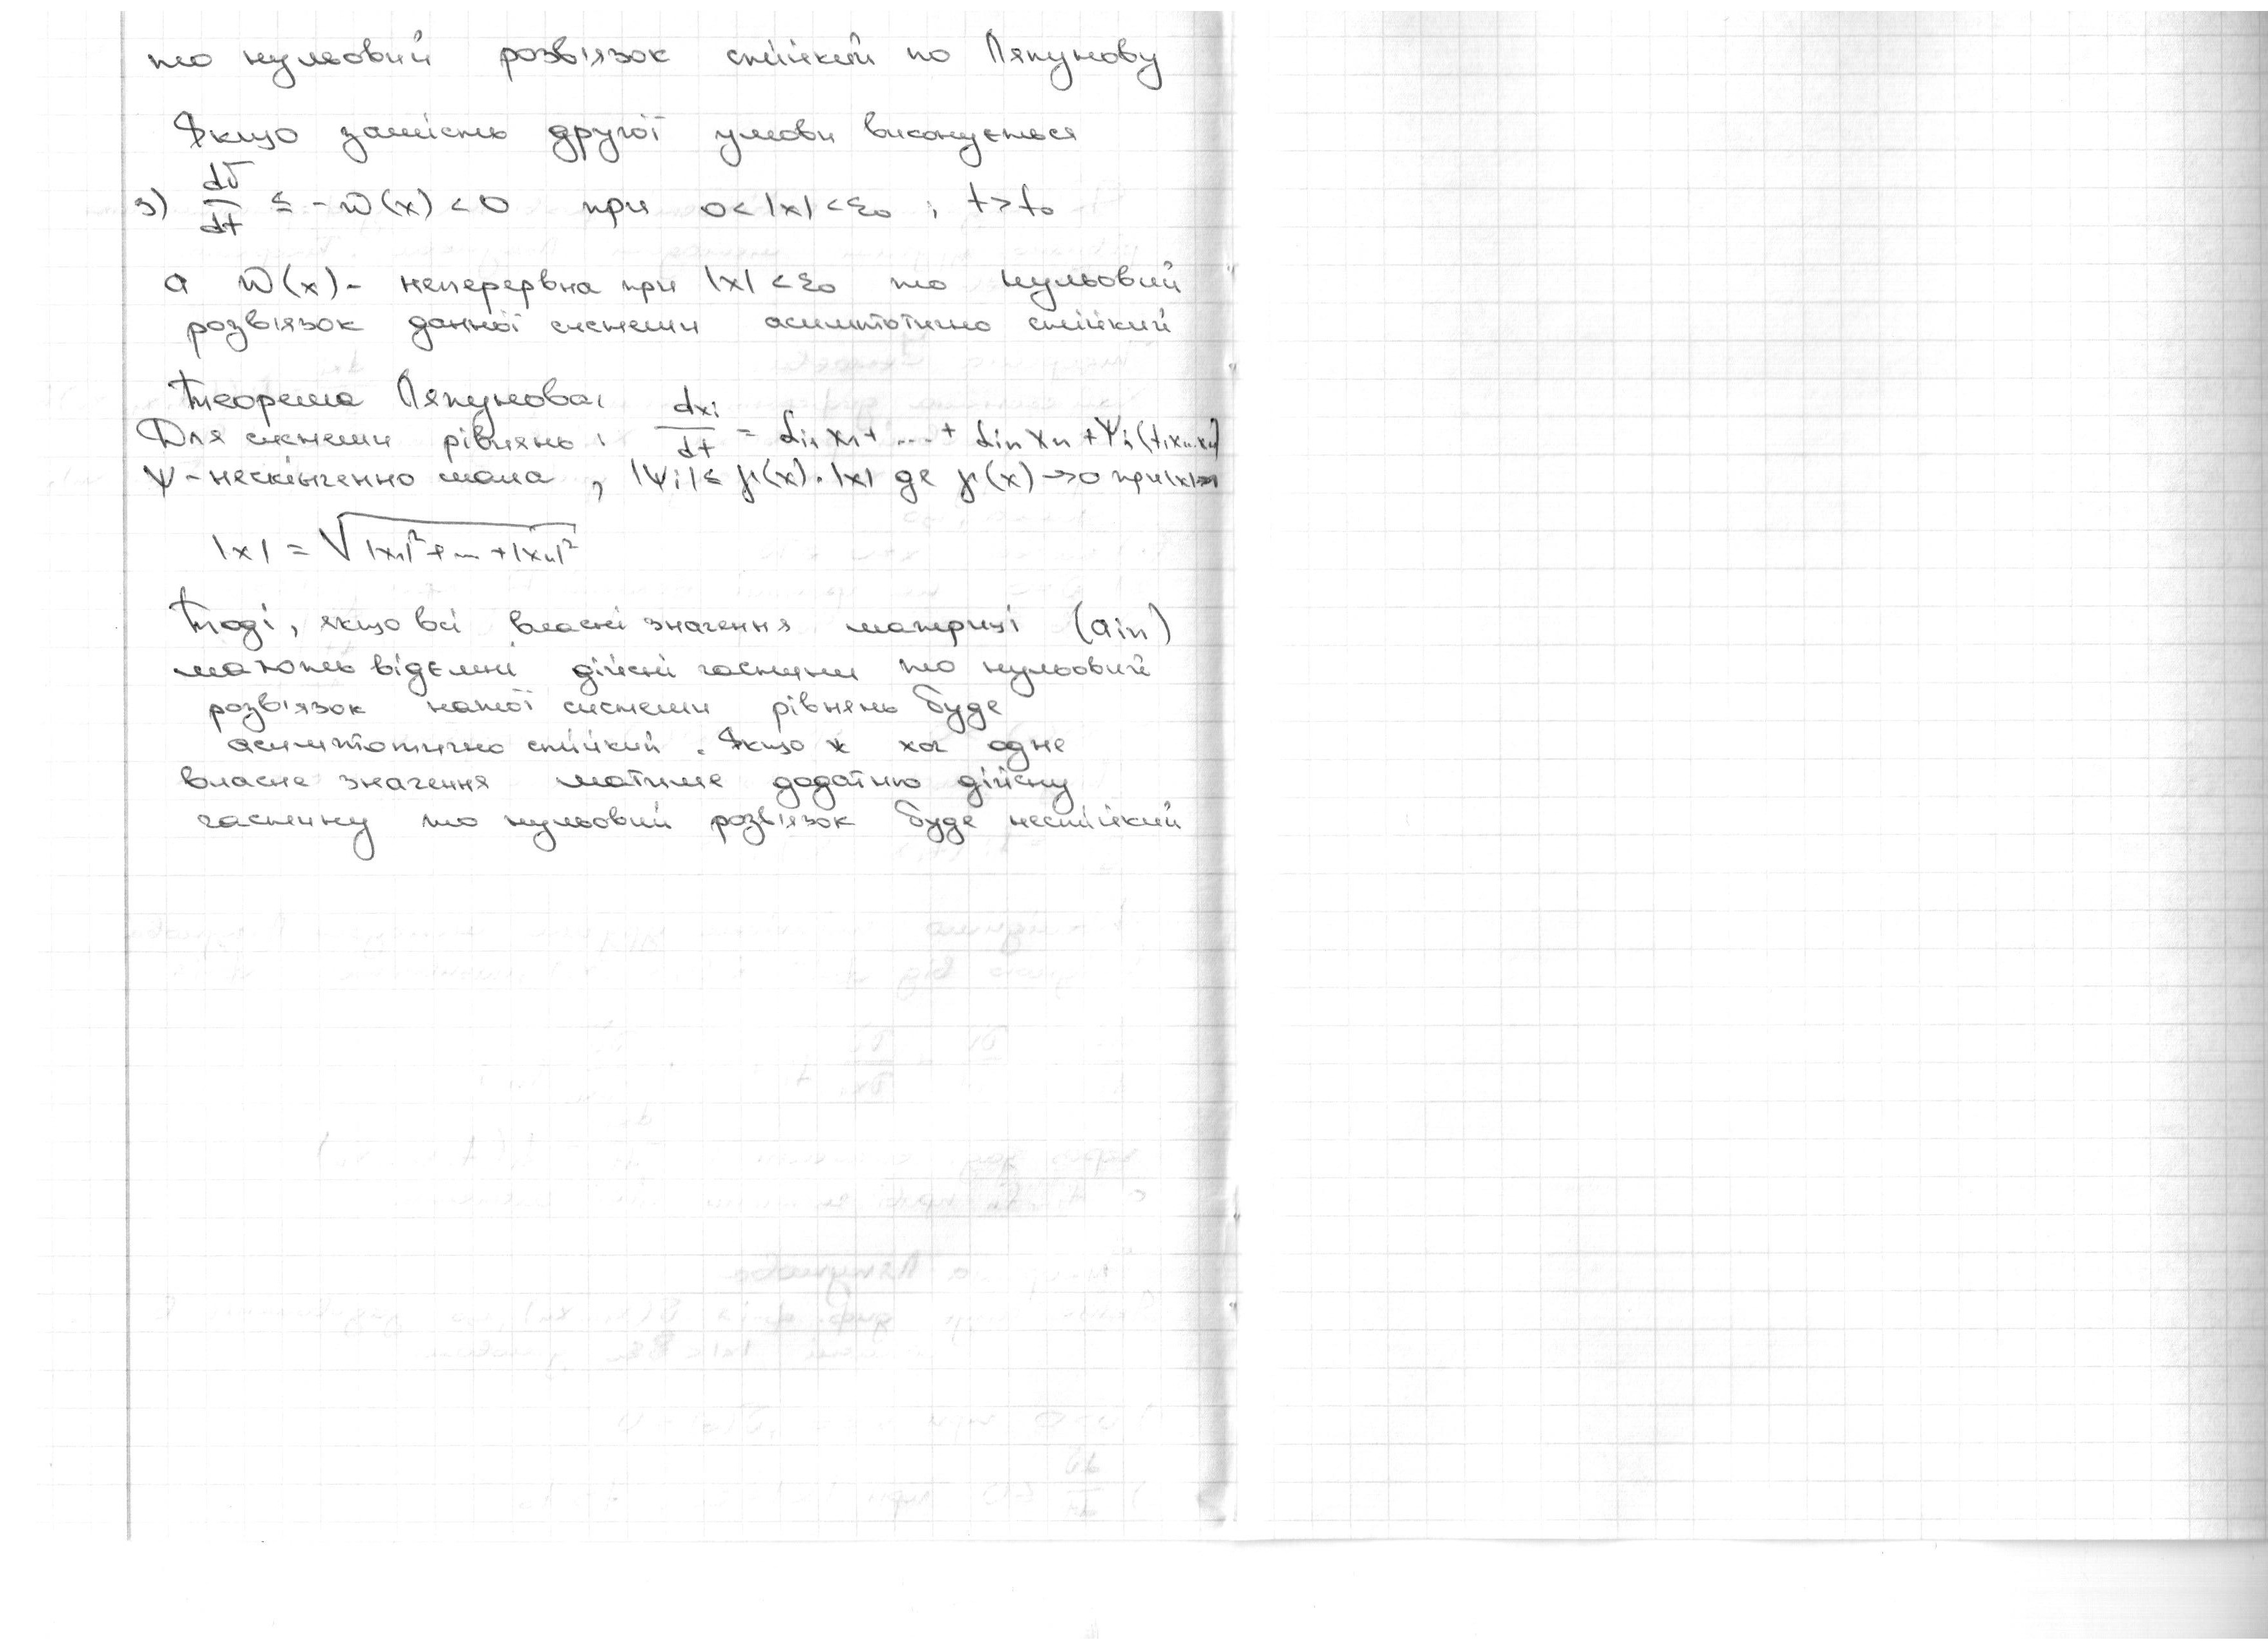 то нульовий розв'язок стійкий по Ляпунову
Якщо замість другої умови виконується
3) dv/dt ≤ -w(x) < 0 при 0<|x|<ε₀ ; t>t₀
а w(x)- неперервна при |x|<ε₀ то нульовий
розв'язок данної системи асимптотично стійкий
Теорема Ляпунова:
Для системи рівнянь : dxi/dt = αi1 x1 + .... + αin xn + Ψi (t,x1..xn)
Ψ-нескінченно мала , |Ψi| ≤ γ(x)·|x| де γ(x)→0 при
|x| = √(|x1|² + ... + |xn|²)
Тоді, якщо всі власні значення матриці (ain)
мають відємні дійсні частини то нульовий
розв'язок нашої системи рівнянь буде
асимптотично стійкий . Якщо ж хоч одне
власне значення матиме додатню дійсну
частину то нульовий розв'язок буде нестійкий